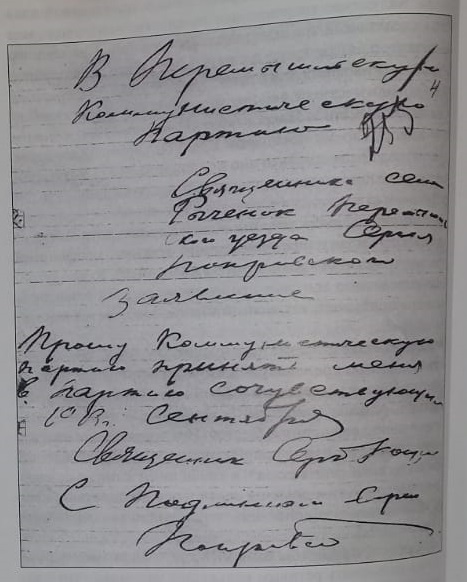 В Перемышльскую
Коммунистическую
партию
4
Священника села
Перемышль
ского уезда Сергия
Покровского
Заявление
Прошу Коммунистическую
партию принять меня
в партию сочувствующим
Сентября
Священник
С Подлинным